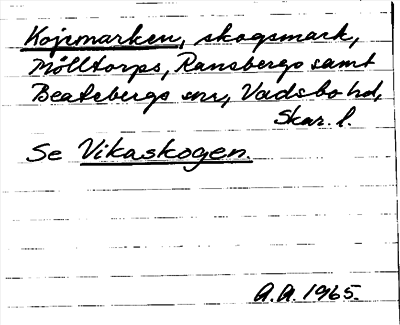 Kojrmarken, skogsmark,
Mölltorps, Ransbergs samt
Beatebergs snr, Vadsbo hd,
Skar. l.
Se Vikaskogen.
A.A. 1965.